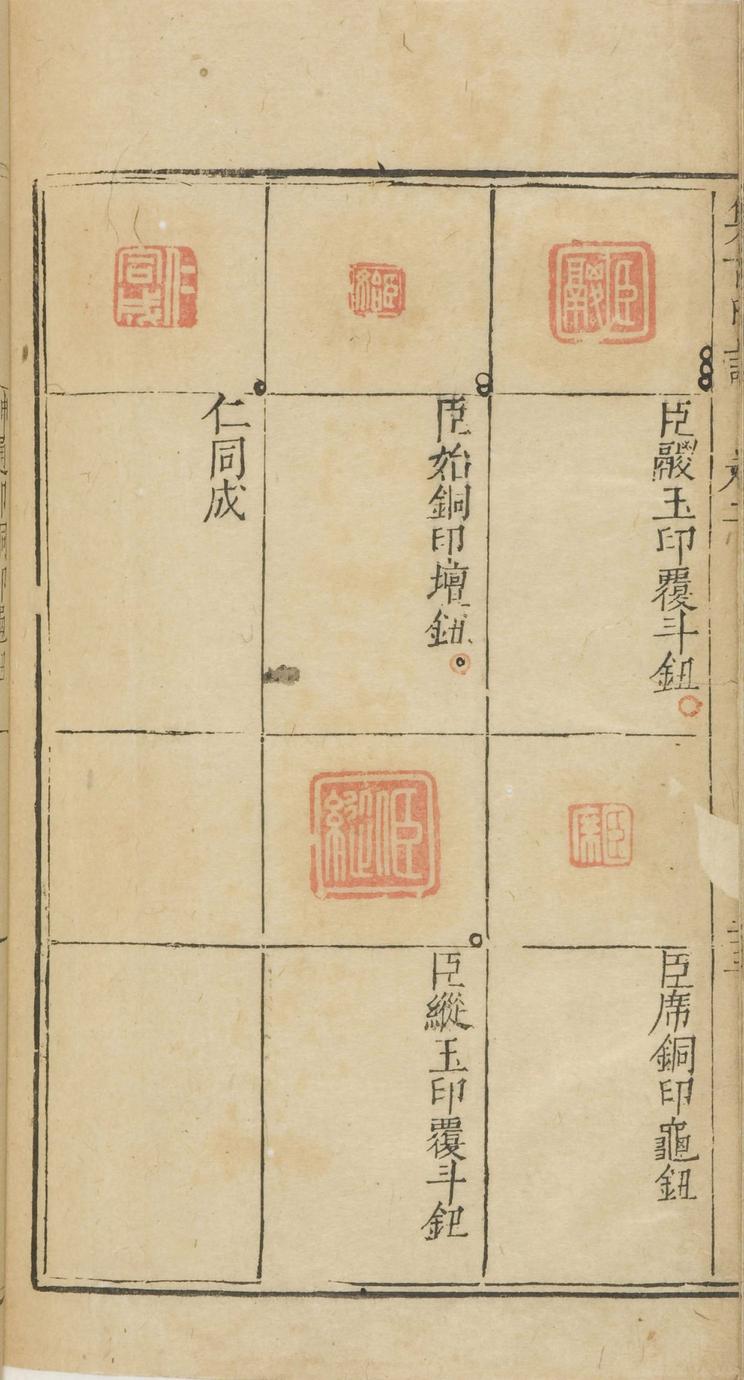 臣䣛玉印覆斗鈕
臣席銅印龜鈕
臣始銅印壇鈕
臣縱玉印覆斗鈕
仁同成